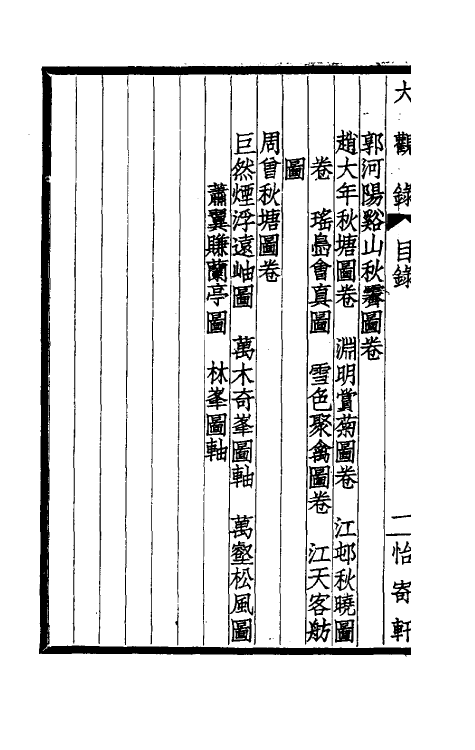 大觀錄 目錄 二 怡寄軒
郭河陽谿山秋霽圖卷
趙大年秋塘圖卷 淵明賞菊圖卷 江邨秋曉圖
卷 瑤島會真圖 雪色聚禽圖卷 江天客舫
圖
周曾秋塘圖卷
巨然煙浮遠岫圖 萬木奇峯圖軸 萬壑松風圖
蕭翼賺蘭亭圖 林峯圖軸